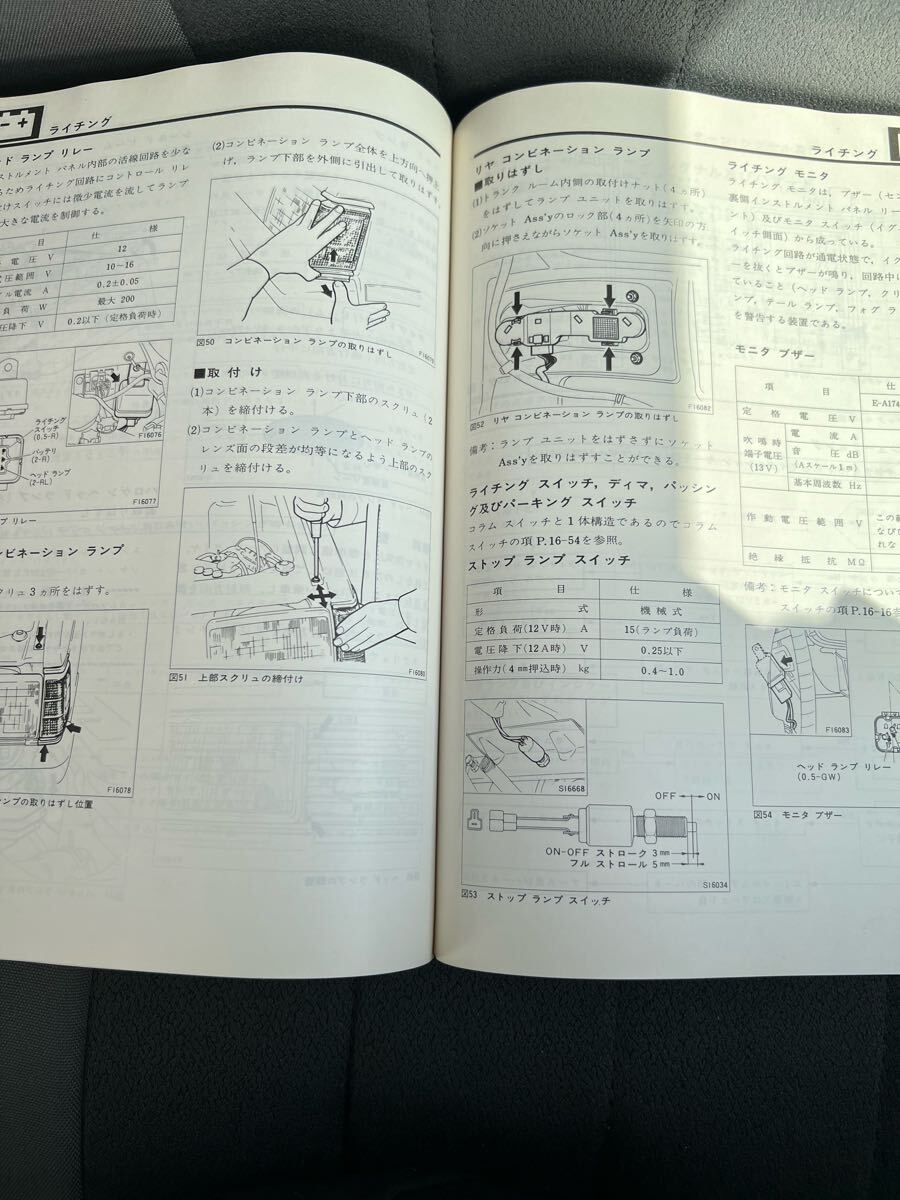 ライチング
ド ランプ リレー
ストルメント パネル内部の活線回路を少な
るためライチング回路にコントロール リレ
けスイッチには微少電流を流してランプ
大きな電流を制御する。
目 仕 様
電 圧 V 12
圧範囲 V 10~16
ル電流 A 0.2±0.05
負 荷 W 最大 200
圧降下 V 0.2以下(定格負荷時)
F16076
ライチング
スイッチ
(0.5-R)
バッテリ
(2-R)
ヘッド ランプ
(2-RL)
F16077
プ リレー
ンビネーション ランプ
クリュ3ヵ所をはずす。
F16078
ンプの取りはずし位置
(2)コンビネーション ランプ全体を上方向へ押上
げ，ランプ下部を外側に引出して取りはずす。
F16079
図50 コンビネーション ランプの取りはずし
■取 付 け
(1)コンビネーション ランプ下部のスクリュ(2
本)を締付ける。
(2)コンビネーション ランプとヘッド ランプの
レンズ面の段差が均等になるよう上部のスク
リュを締付ける。
F16080
図51 上部スクリュの締付け
ライチング
リヤ コンビネーション ランプ
■取りはずし
(1)トランク ルーム内側の取付けナット(4ヵ所)
をはずしてランプ ユニットを取りはずす。
(2)ソケット Ass'yのロック部(4ヵ所)を矢印の方
向に押さえながらソケット Ass'yを取りはずす。
F16082
図52 リヤ コンビネーション ランプの取りはずし
備考：ランプ ユニットをはずさずにソケット
Ass'yを取りはずすことができる。
ライチング スイッチ，ディマ，パッシン
グ及びパーキング スイッチ
コラム スイッチと1体構造であるのでコラム
スイッチの項P.16-54を参照。
ストップ ランプ スイッチ
項 目 仕 様
形 式 機 械 式
定格負荷(12V時) A 15(ランプ負荷)
電圧降下(12A時) V 0.25以下
操作力(4㎜押込時) kg 0.4~1.0
S16668
OFF ON
ON-OFF ストローク 3㎜
フル ストロール 5㎜
S16034
図53 ストップ ランプ スイッチ
ライチング モニタ
ライチング モニタは，ブザー(セン
裏側インストルメント パネル リー
ント)及びモニタ スイッチ(イグ
イッチ側面)から成っている。
ライチング回路が通電状態で，イク
ーを抜くとブザーが鳴り，回路中に
ていること(ヘッド ランプ，クリ
ンプ，テール ランプ，フォグ ラ
を警告する装置である。
モニタ ブザー
項 目 仕
E-A174
定 格 電 圧 V
吹鳴時
端子電圧
(13V)
電 流 A
音 圧 dB
(Aスケール1m)
基本周波数 Hz
作 動 電 圧 範 囲 V この範
なびび
れな
絶 縁 抵 抗 MΩ
備考：モニタ スイッチについ
スイッチの項P.16-16参
F16083
ヘッド ランプ リレー
(0.5-GW)
図54 モニタ ブザー